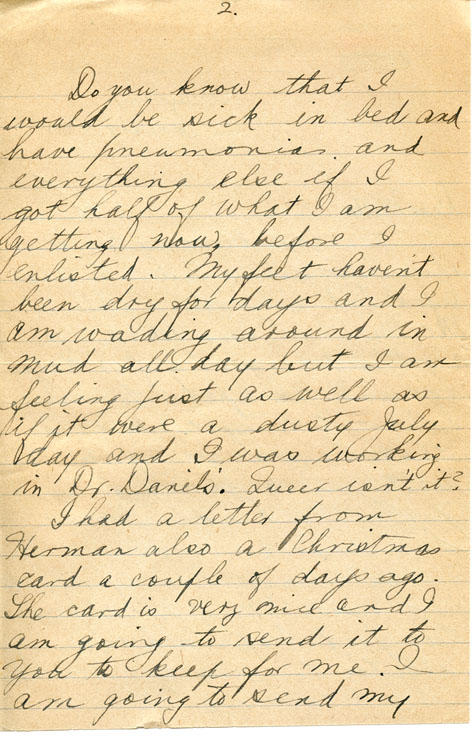 2.
Do you know that I
would be sick in bed and
have pneumonia and
everything else if I
got half of what I am
getting now, before I
enlisted. My feet haven't
been dry for days and I
am wading around in
mud all day but I am
feeling just as well as
if it were a dusty July
day and I was working
in Dr. Daniels'. Queer isn't it?
I had a letter from
Herman also a Christmas
card a couple of days ago.
The card is very nice and I
am going to send it to
you to keep for me. I
am going to send my